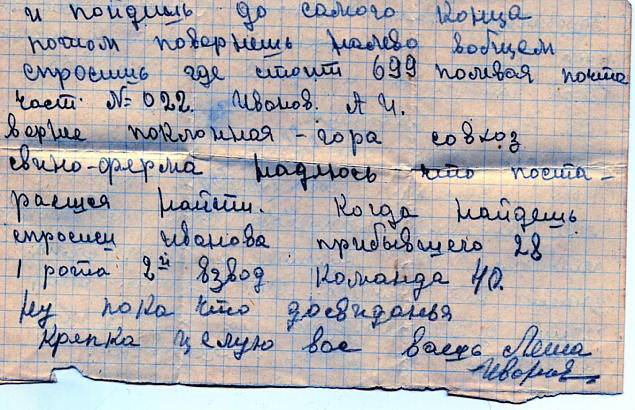 и пойдишь до самого конца
потом повернешь налево вобщем
спросишь где стоит 699 полевая почта
част. № 022. Иванов. А И.
верне поклонная-гора совхоз
свино-ферма надиюсь что поста-
раешся найти. Когда найдешь
спросиш Иванова прибывшего 28
1 рота 2й взвод Команда 40.
Ну пока что досвиданья
Крепка целую вас ваш Леша
Иванов